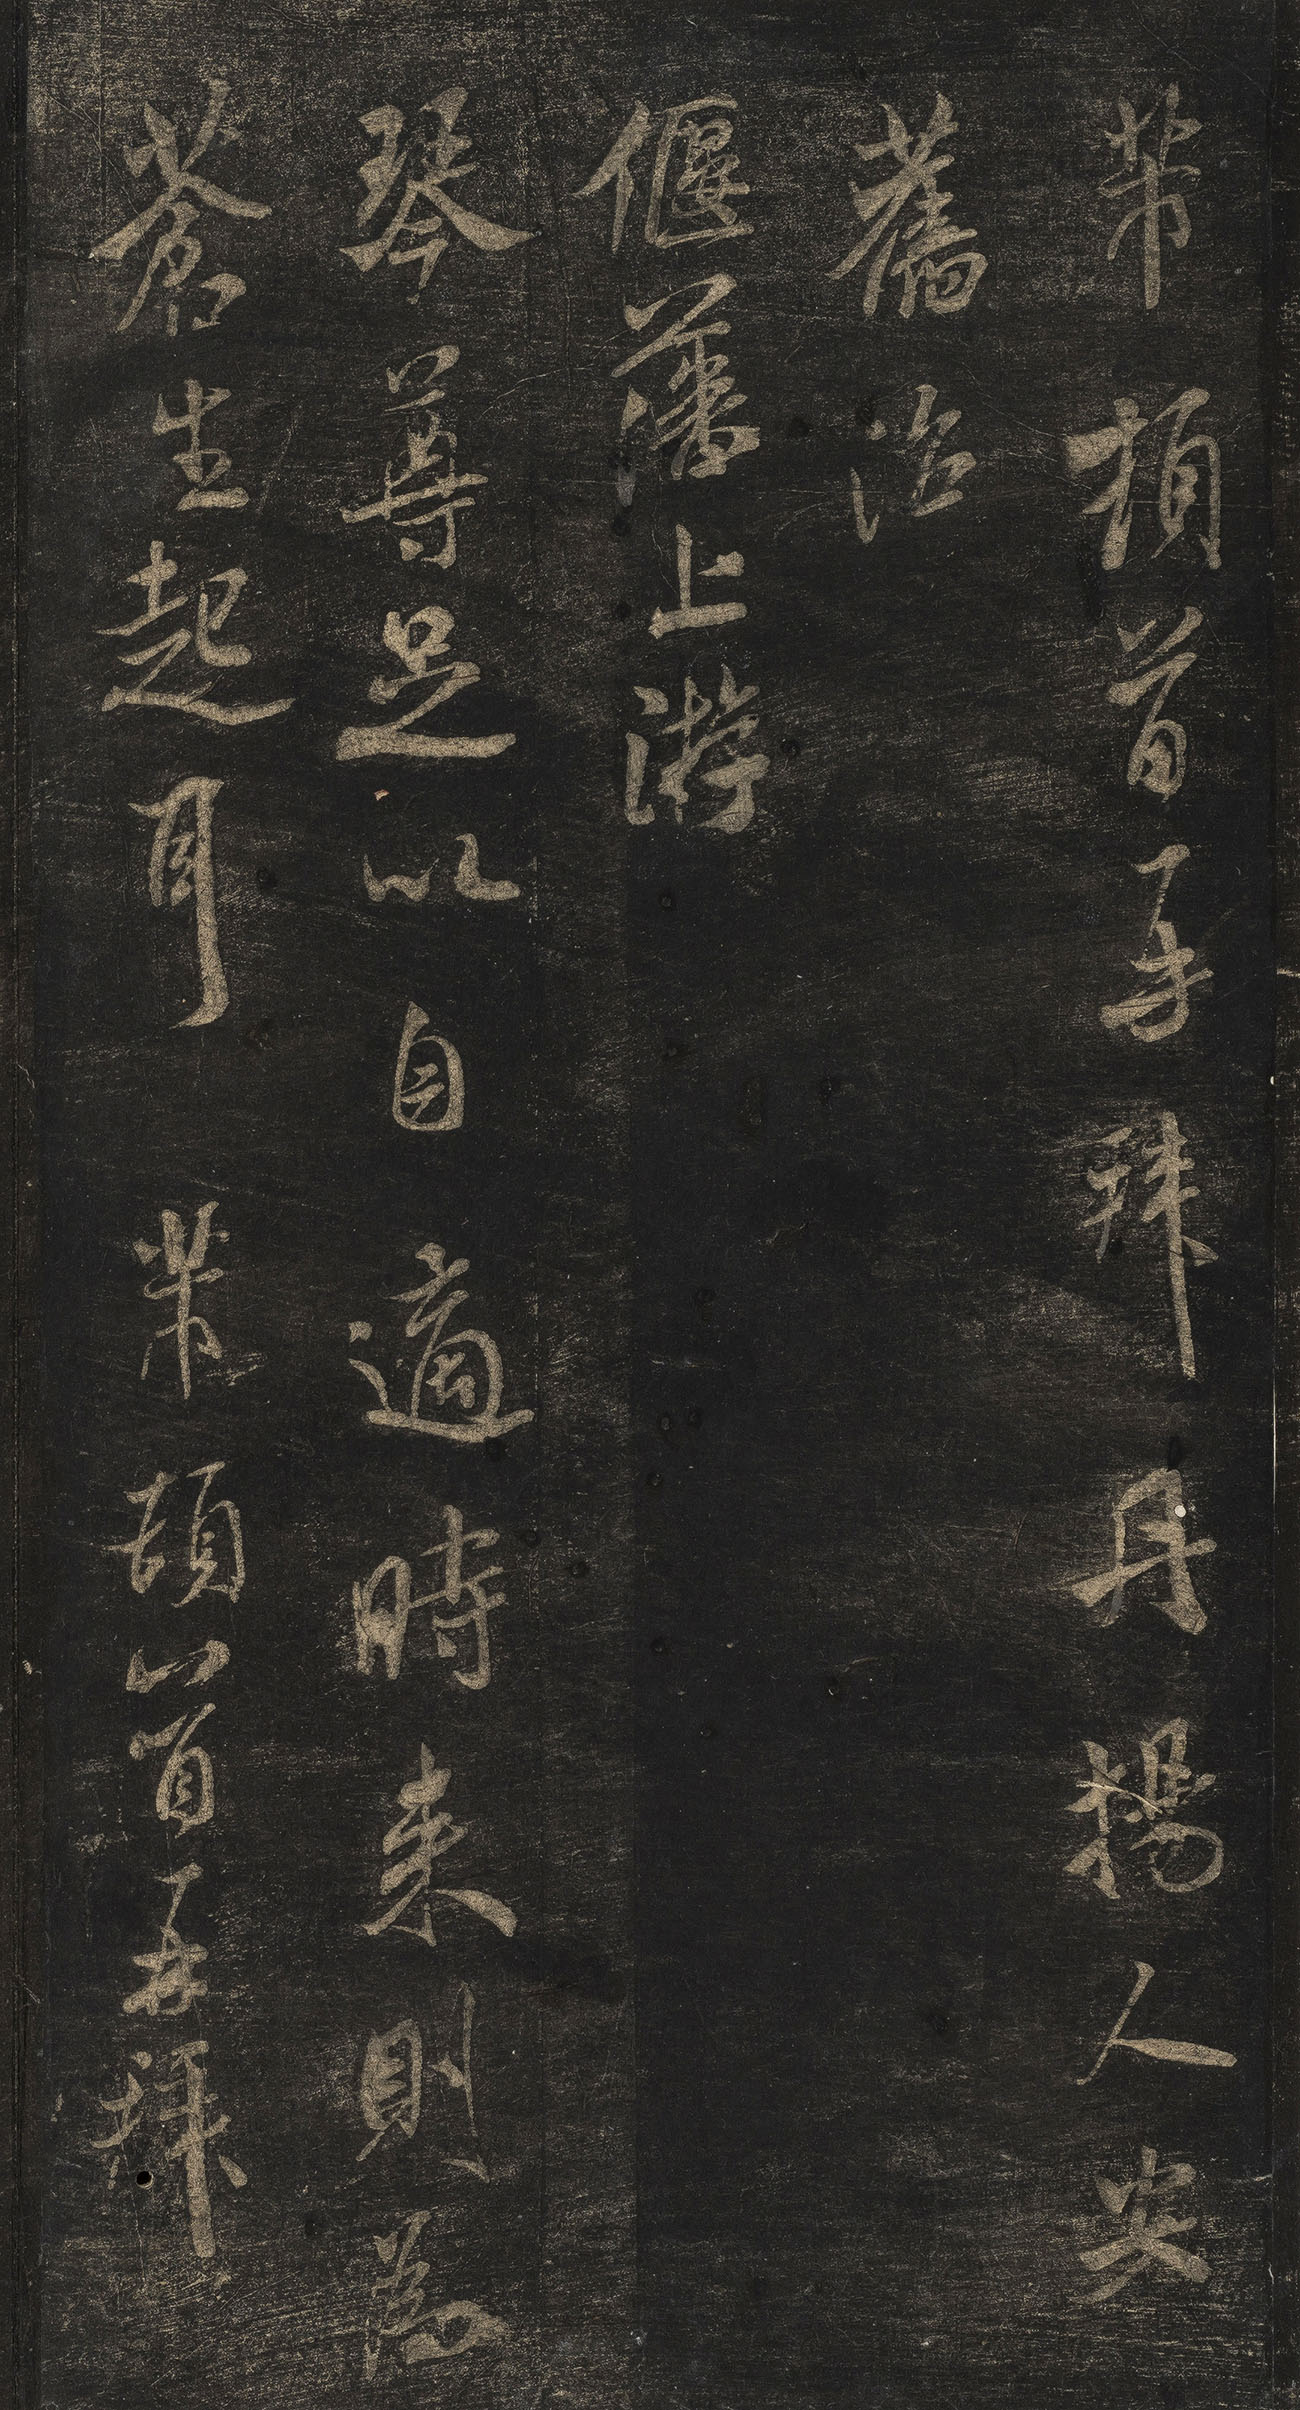 芾頓首再拜丹楊人安
舊治
偃藩上游
琴尊足以自適時来則為
蒼生起耳芾頓首再拜